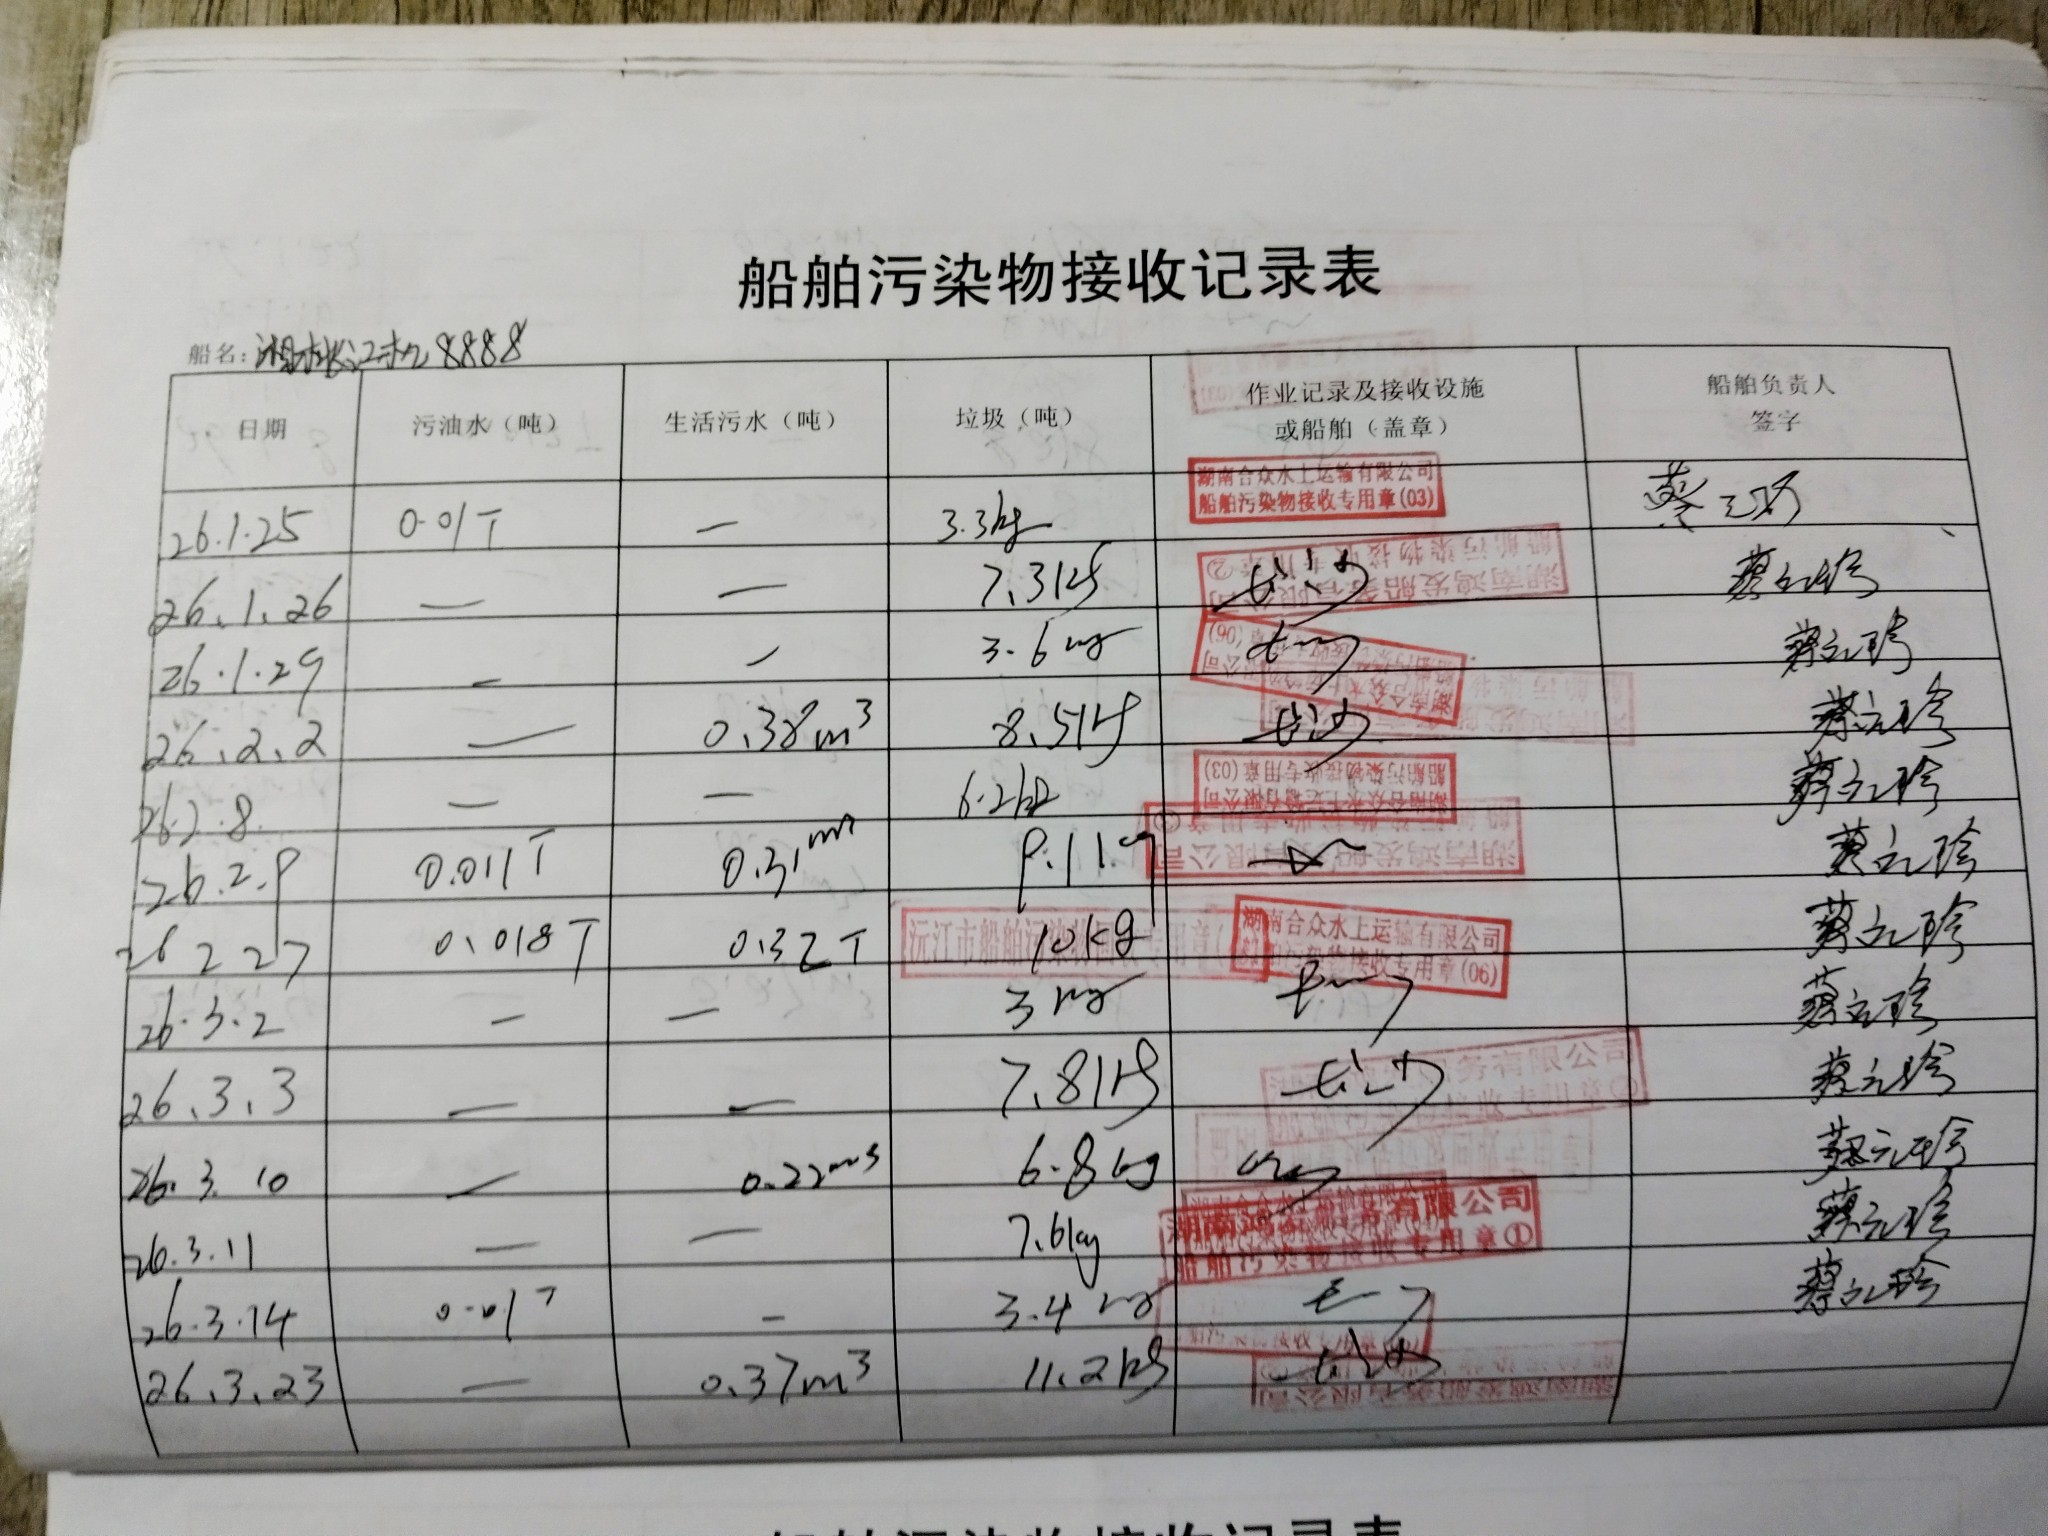 船舶污染物接收记录表
船名: 8888
日期 污油水（吨） 生活污水（吨） 垃圾（吨） 作业记录及接收设施或船舶（盖章） 船舶负责人签字
湖南合众水上运输有限公司
船舶污染物接收专用章(03)
26.1.25 0.01T — 3.3kg 蔡元珍
26.1.26 — — 7.3kg 长沙 蔡元珍
26.1.29 — — 3.6kg 蔡元珍
26.2.2 — 0.38m³ 8.5kg 长沙 蔡元珍
湖南合众水上运输有限公司
船舶污染物接收专用章(03)
26.2.8. — — 6.2kg 蔡元珍
26.2.9 0.011T 0.31m³ 蔡元珍
湖南合众水上运输有限公司
船舶污染物接收专用章(06)
26 2 27 0.018T 0.32T 10kg 蔡元珍
26.3.2 — — 3kg 蔡元珍
26.3.3 — — 7.8kg 长沙 蔡元珍
26.3.10 — 0.22m³ 6.8kg 蔡元珍
26.3.11 — — 7.6kg 蔡元珍
船舶污染物接收专用章①
26.3.14 0.01T — 3.4kg 蔡元珍
26.3.23 — 0.37m³ 11.2kg 长沙
船舶污染物接收记录表